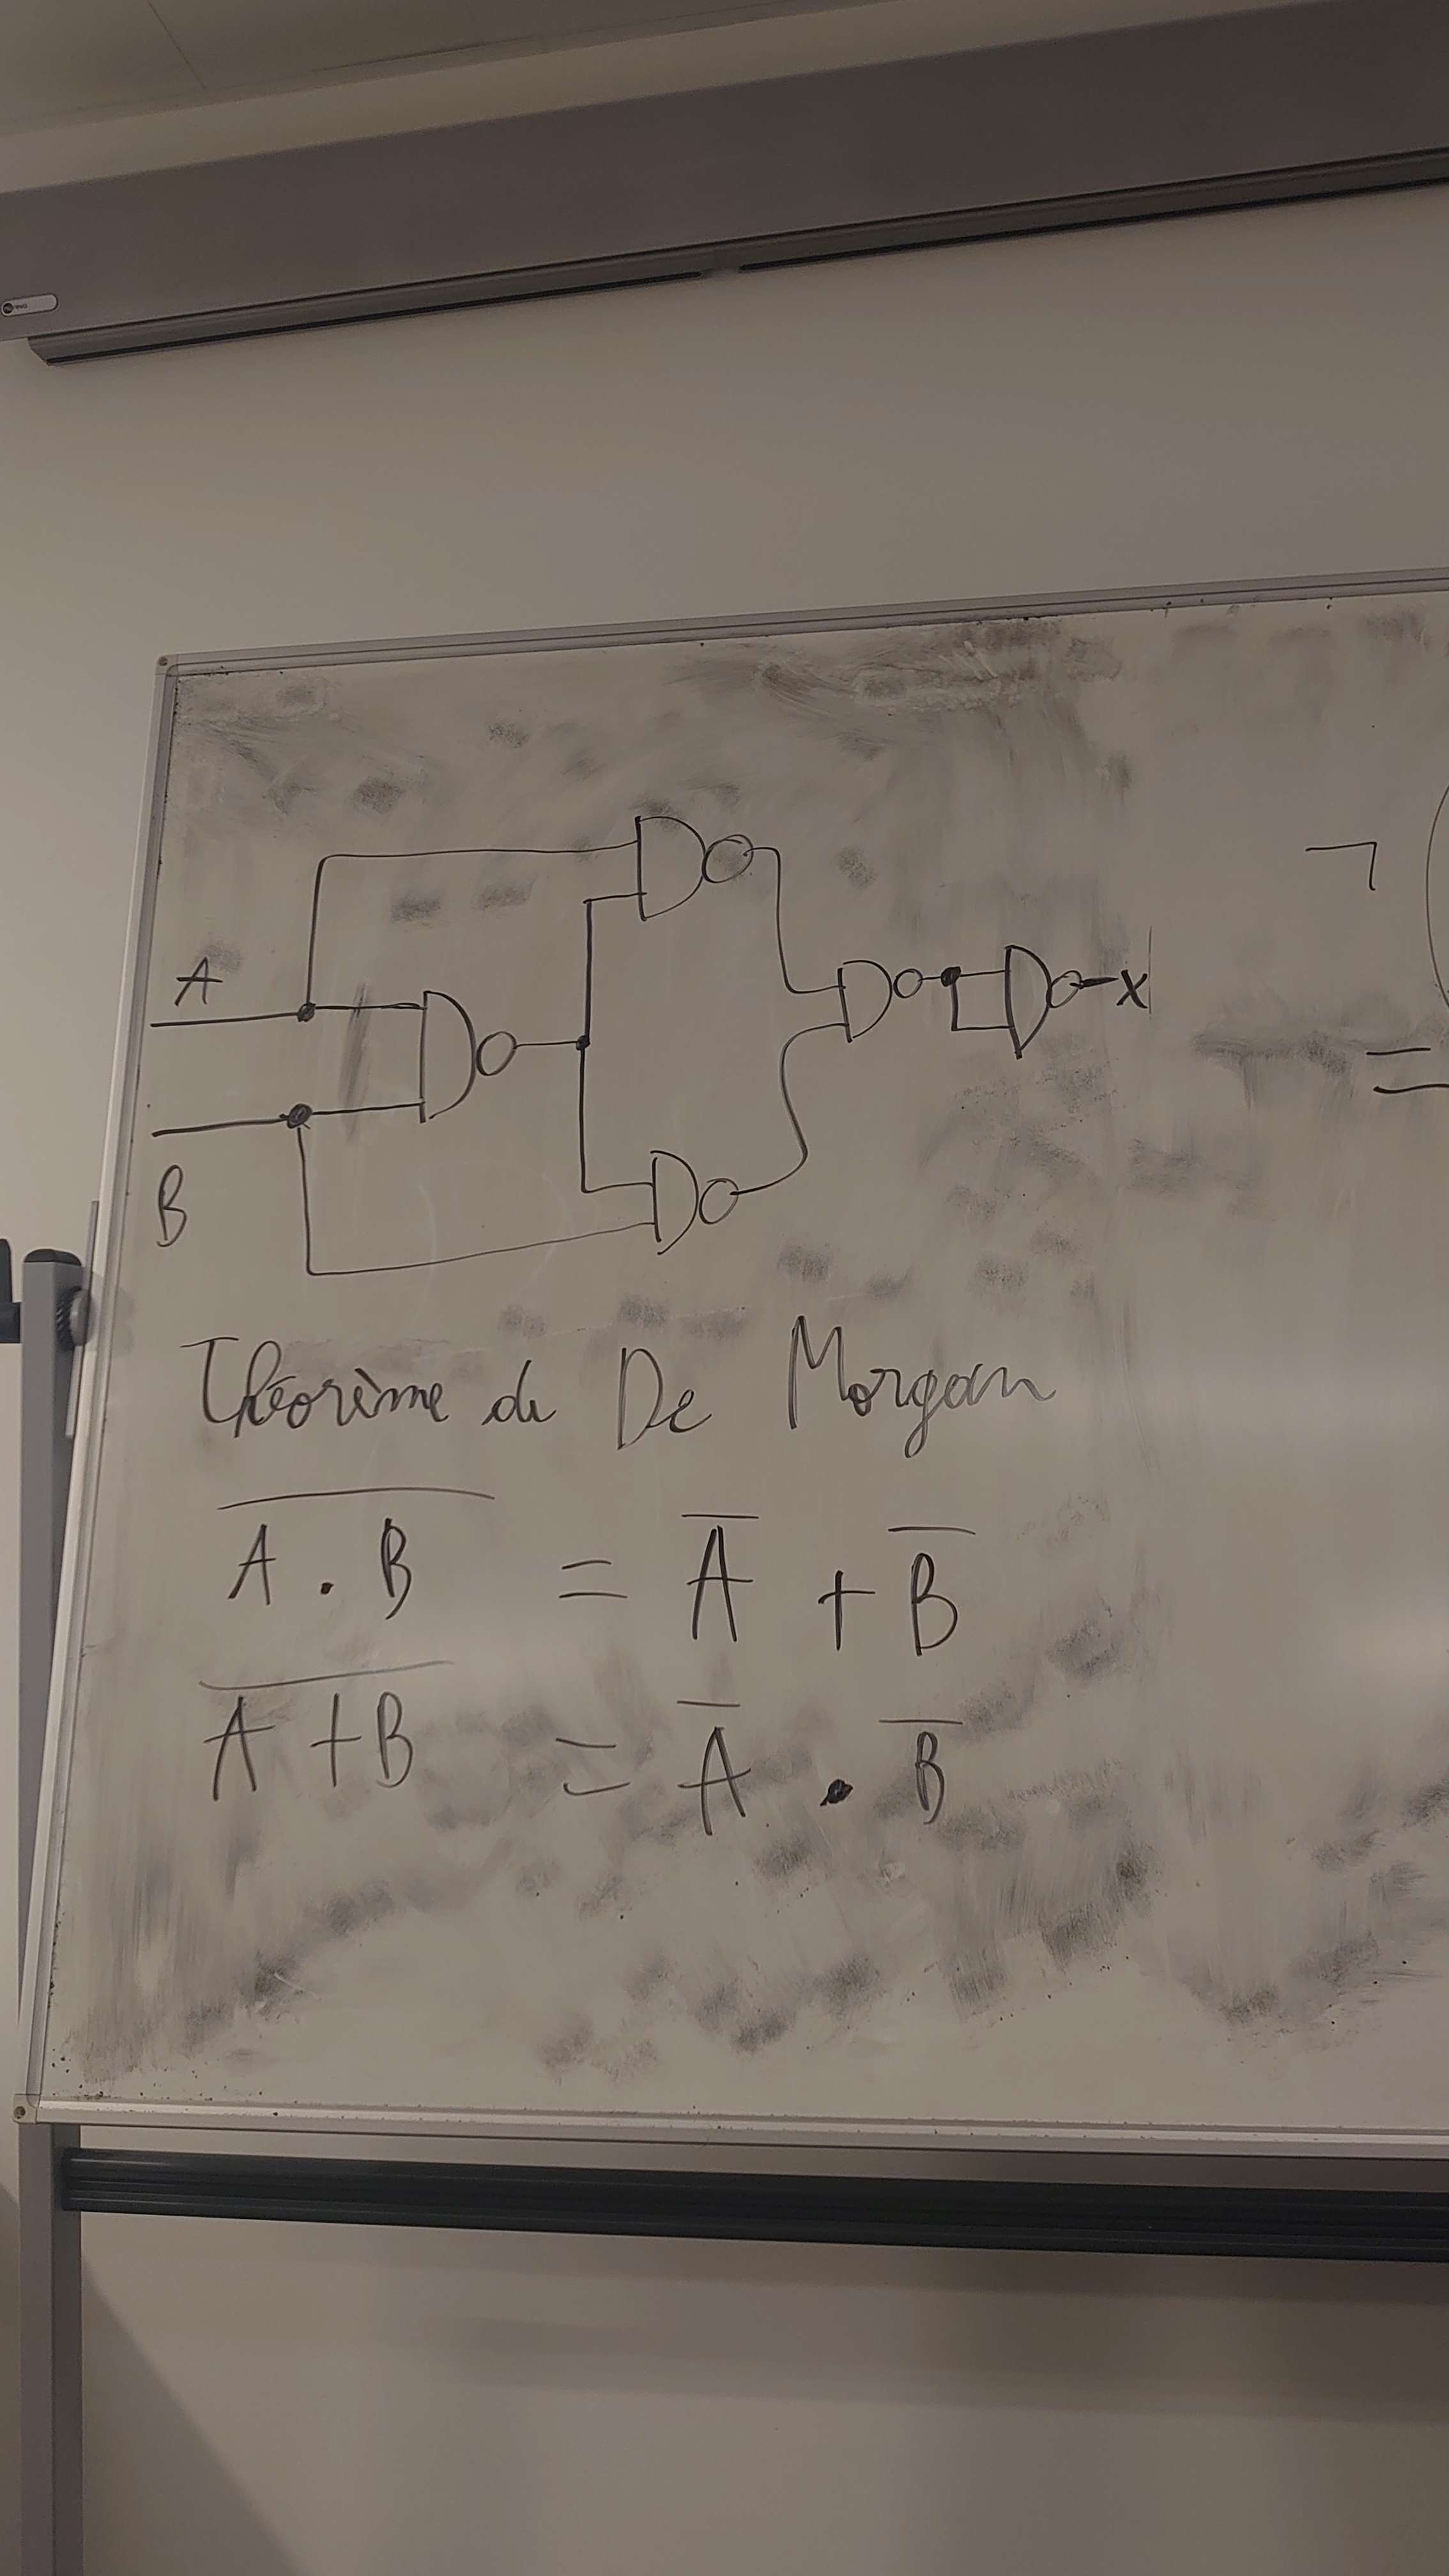 A
X
B
Théorème de De Morgan
A̅ ̅.̅ ̅B̅ = A̅ + B̅
A̅ ̅+̅ ̅B̅ = A̅ . B̅
¬
=